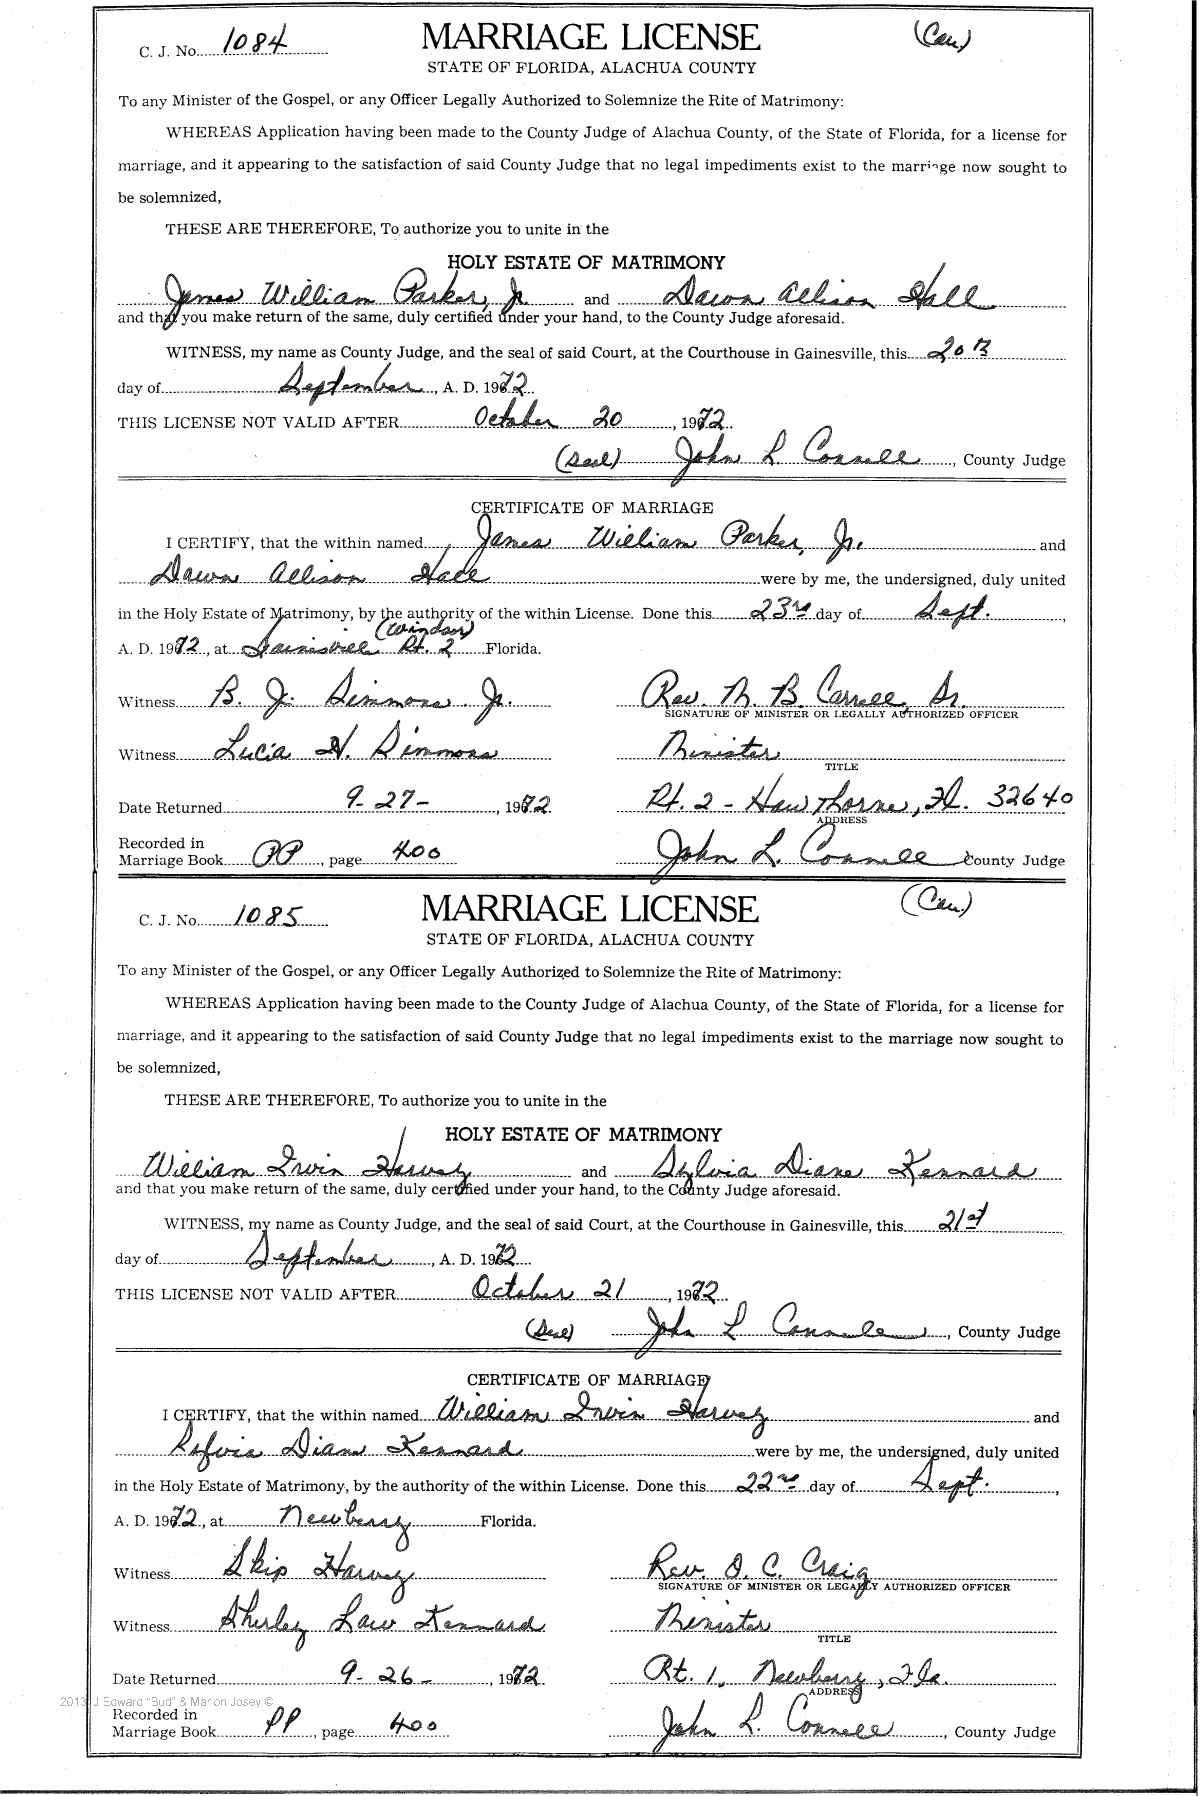 C. J. No. 1084 MARRIAGE LICENSE (Cau)
STATE OF FLORIDA, ALACHUA COUNTY
To any Minister of the Gospel, or any Officer Legally Authorized to Solemnize the Rite of Matrimony:
WHEREAS Application having been made to the County Judge of Alachua County, of the State of Florida, for a license for
marriage, and it appearing to the satisfaction of said County Judge that no legal impediments exist to the marriage now sought to
be solemnized,
THESE ARE THEREFORE, To authorize you to unite in the
HOLY ESTATE OF MATRIMONY
James William Parker, Jr. and Dawn Allison Hall
and that you make return of the same, duly certified under your hand, to the County Judge aforesaid.
WITNESS, my name as County Judge, and the seal of said Court, at the Courthouse in Gainesville, this 20th
day of September, A. D. 1972
THIS LICENSE NOT VALID AFTER October 20, 1972
(Seal) John L. Connell, County Judge
CERTIFICATE OF MARRIAGE
I CERTIFY, that the within named James William Parker, Jr. and
Dawn Allison Hall were by me, the undersigned, duly united
in the Holy Estate of Matrimony, by the authority of the within License. Done this 23rd day of Sept.,
(Windsor)
A. D. 1972, at Gainesville Rt. 2 Florida.
Witness B. J. Simmons Jr. Rev. M. B. Carrell, Sr.
SIGNATURE OF MINISTER OR LEGALLY AUTHORIZED OFFICER
Witness Lucia N. Simmons Minister
TITLE
Date Returned 9-27-, 1972 Rt. 2 - Hawthorne, Fl. 32640
ADDRESS
Recorded in
Marriage Book PP, page 400 John L. Connell County Judge
C. J. No. 1085 MARRIAGE LICENSE (Cau.)
STATE OF FLORIDA, ALACHUA COUNTY
To any Minister of the Gospel, or any Officer Legally Authorized to Solemnize the Rite of Matrimony:
WHEREAS Application having been made to the County Judge of Alachua County, of the State of Florida, for a license for
marriage, and it appearing to the satisfaction of said County Judge that no legal impediments exist to the marriage now sought to
be solemnized,
THESE ARE THEREFORE, To authorize you to unite in the
HOLY ESTATE OF MATRIMONY
William Irvin Harvey and Sylvia Diane Kennard
and that you make return of the same, duly certified under your hand, to the County Judge aforesaid.
WITNESS, my name as County Judge, and the seal of said Court, at the Courthouse in Gainesville, this 21st
day of September, A. D. 1972
THIS LICENSE NOT VALID AFTER October 21, 1972
(Seal) John L Connell, County Judge
CERTIFICATE OF MARRIAGE
I CERTIFY, that the within named William Irvin Harvey and
Sylvia Diane Kennard were by me, the undersigned, duly united
in the Holy Estate of Matrimony, by the authority of the within License. Done this 22nd day of Sept.,
A. D. 1972, at Newberry Florida.
Witness Skip Harvey Rev. O. C. Craig
SIGNATURE OF MINISTER OR LEGALLY AUTHORIZED OFFICER
Witness Shirley Law Kennard Minister
TITLE
Date Returned 9-26-, 1972 Rt. 1, Newberry, Fla.
ADDRESS
2013 J Edward "Bud" & Marion Josey ©
Recorded in
Marriage Book PP, page 400 John L. Connell, County Judge